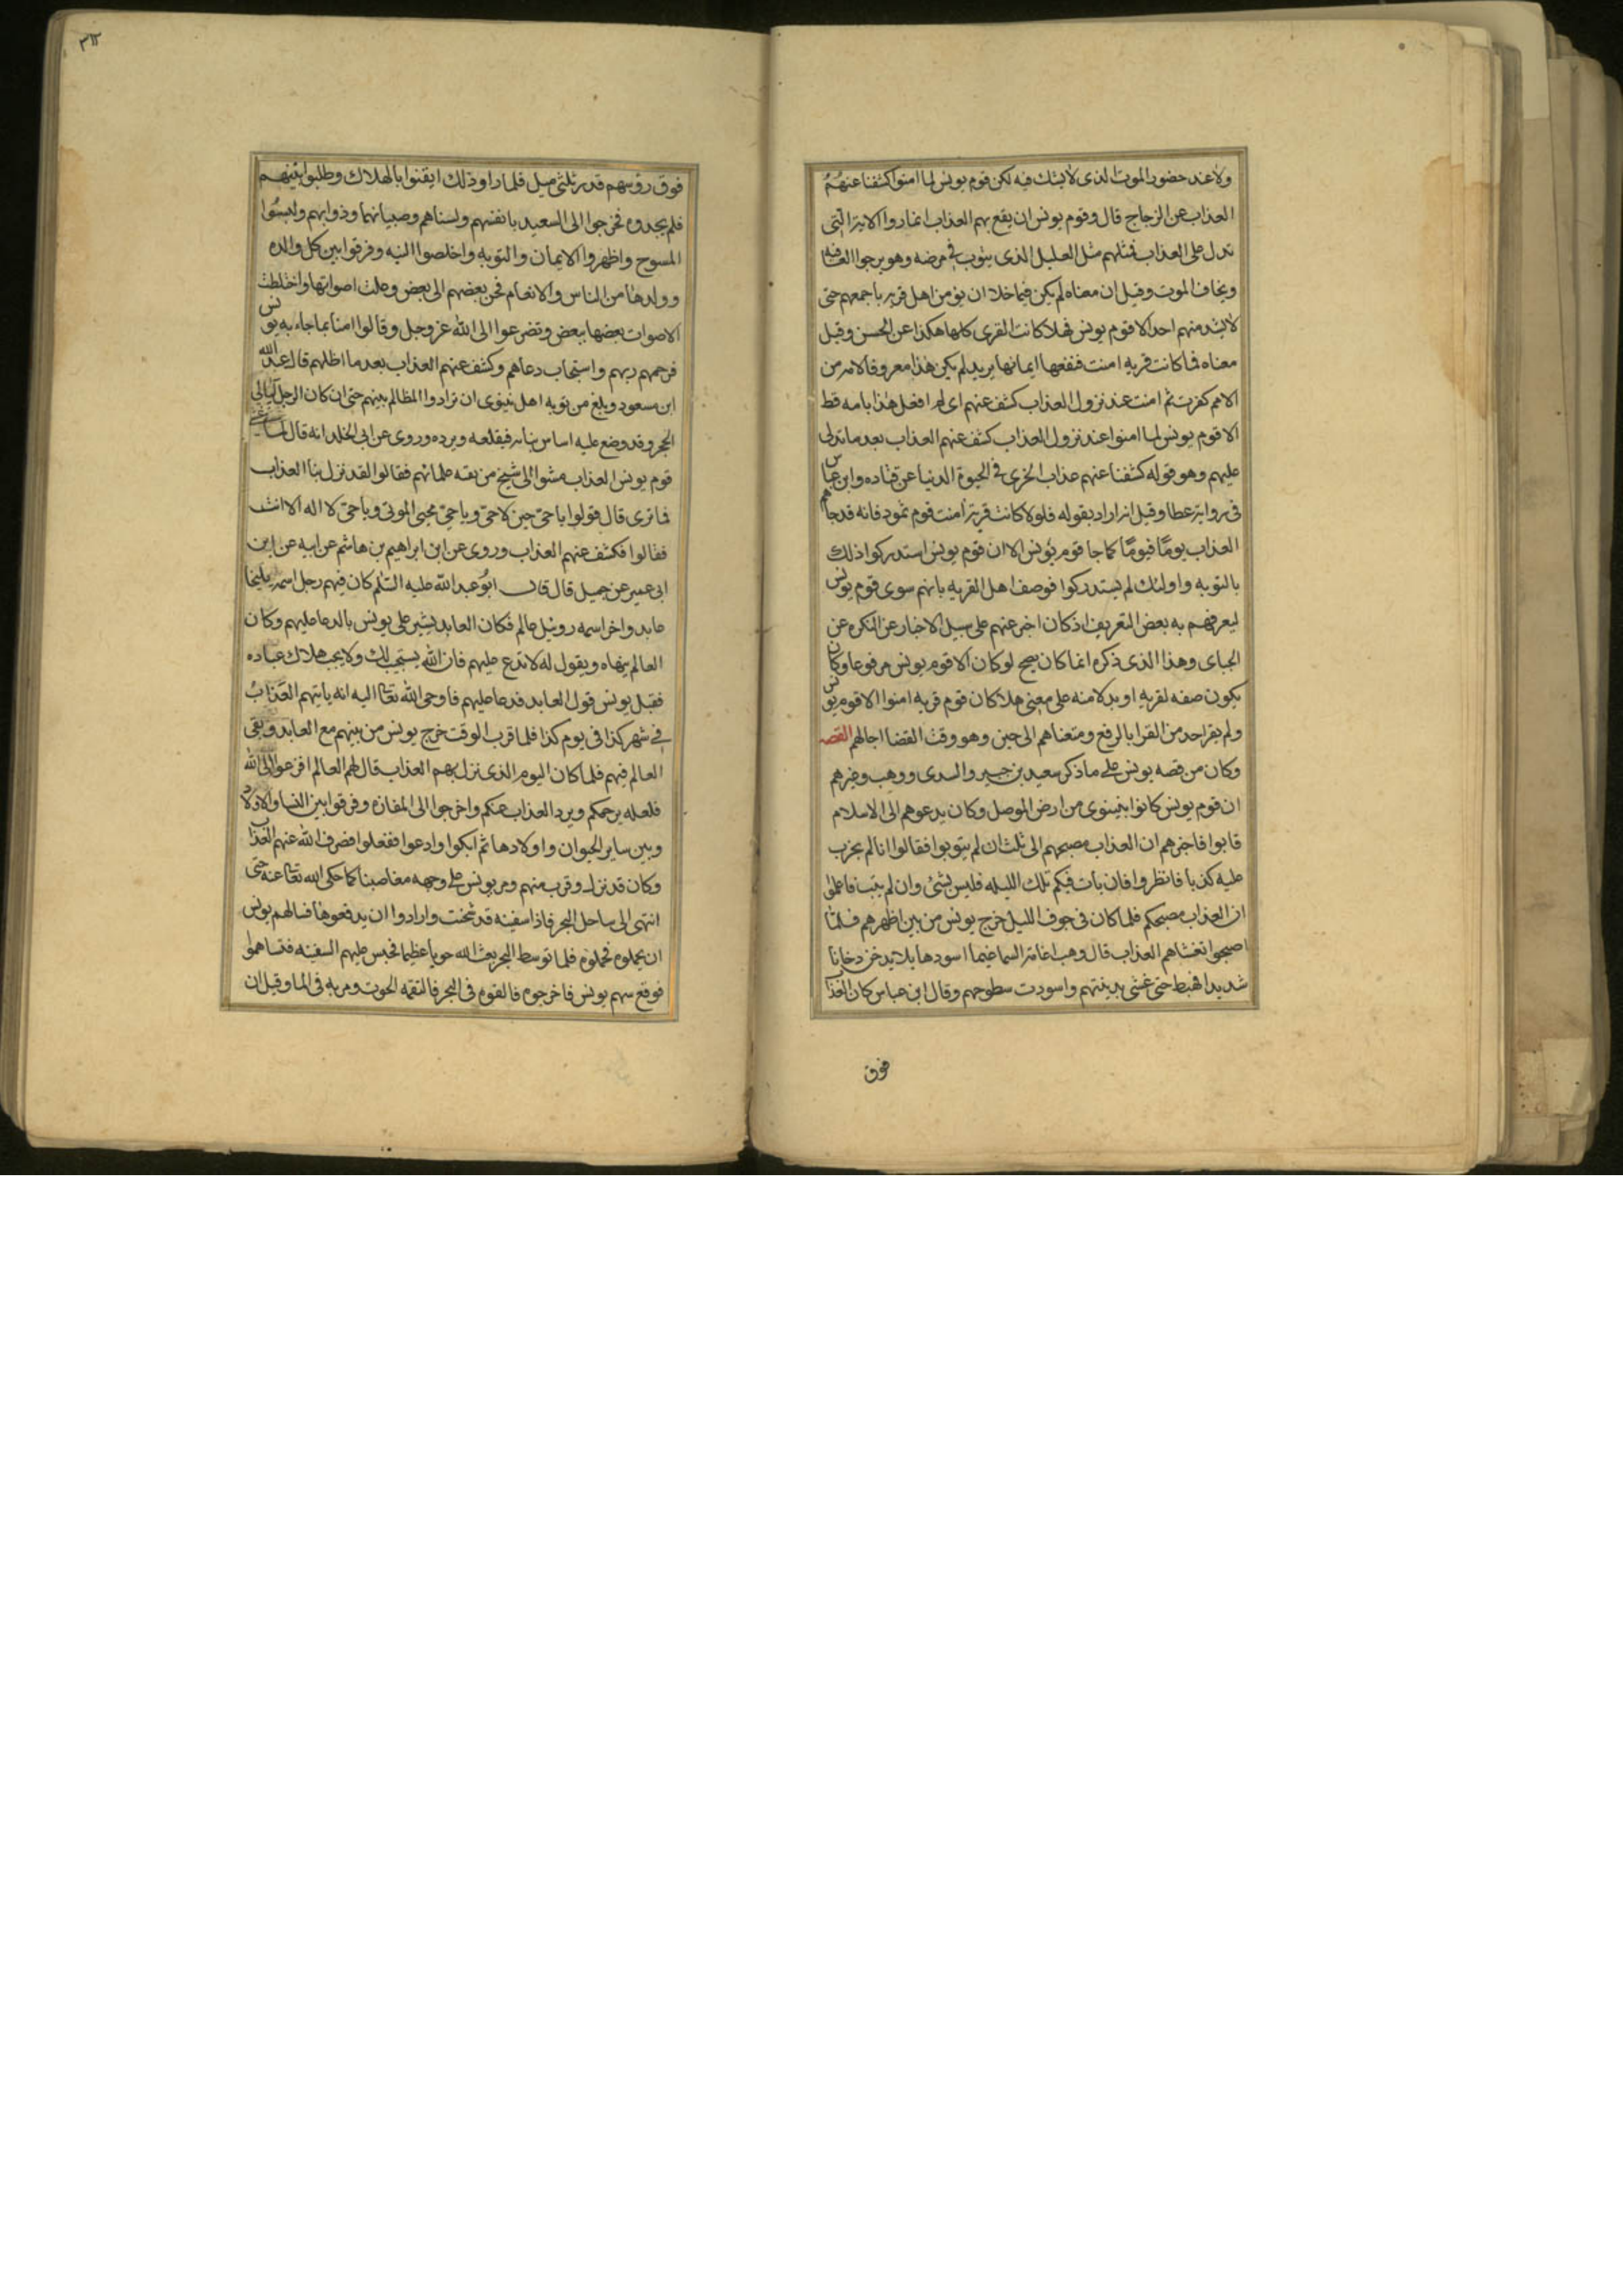 ولا عند حضور الموت الذى لا يشك فيه لكن قوم يونس لما امنوا كشفنا عنهم
العذاب عن الزجاج قال وقوم يونس ان يقع بهم العذاب انما روا الاية التى
تدل على العذاب فمثلهم مثل العليل الذى يتوب فى مرضه وهو يرجوا العافيه
ويخاف الموت وقيل ان معناه لم يكن فيما خلا ان يؤمن اهل قرية باجمعهم حتى
لا يشذ منهم احد الا قوم يونس فهلا كانت القرى كلها هكذا عن الحسن وقيل
معناه فما كانت قريه امنت فنفعها ايمانها يريد لم يكن هذا معروفا لامة من
الامم كفرت ثم امنت عند نزول العذاب كشف عنهم اى لم افعل هذا بامه قط
الا قوم يونس لما امنوا عند نزول العذاب كشف عنهم العذاب بعد ما تدلى
عليهم وهو قوله كشفنا عنهم عذاب الخزى فى الحيوة الدنيا عن قتاده وابن عباس
فى رواية عطا وقيل انه اراد بقوله فلولا كانت قرية امنت قوم ثمود فانه قد جاهم
العذاب يومًا فيومًا كما جا قوم يونس الا ان قوم يونس استدركوا ذلك
بالتوبه واولئك لم يستدركوا فوصف اهل القريه بانهم سوى قوم يونس
ليعرفهم به بعض التعريف اذ كان اخبر عنهم على سبيل الاخبار عن النكره عن
الجباى وهذا الذى ذكره انما كان يصح لو كان الا قوم يونس مرفوعا وكان
يكون صفه لقريه او بدلا منه على معنى هلا كان قوم قريه امنوا الا قوم يونس
ولم يقرا احد من القرا بالرفع ومتعناهم الى حين وهو وقت القضا اجالهم القصه
وكان من قصه يونس على ما ذكره سعيد بن جبير والسدى ووهب وغيرهم
ان قوم يونس كانوا بنينوى من ارض الموصل وكان يدعوهم الى الاسلام
فابوا فاخبرهم ان العذاب مصبحهم الى ثلث ان لم يتوبوا فقالوا انا لم يجرب
عليه كذبا فانظروا فان بات فيكم تلك الليله فليس بشئ وان لم يبت فاعلموا
ان العذاب مصبحكم فلما كان فى جوف الليل خرج يونس من بين اظهرهم فلما
اصبحوا تغشاهم العذاب قال وهب اغامة السما غيما اسود هايلا يدخن دخانا
شديدا فهبط حتى غشى مدينتهم واسودت سطوحهم وقال ابن عباس كان العذاب
فوق
٣١٢
فوق رؤسهم قدر ثلثى ميل فلما راو ذلك ايقنوا بالهلاك وطلبوا نبيهم
فلم يجدوه فخرجوا الى الصعيد بانفسهم ونسناهم وصبيانهما ودوابهم ولبسوا
المسوح واظهروا الايمان والتوبه واخلصوا النيه وفرقوا بين كل والده
وولدها من الناس والانعام فحن بعضهم الى بعض وعلت اصواتها واختلطت
الاصوات بعضها ببعض وتضرعوا الى الله عز وجل وقالوا امنا بما جاء به يونس
فرحمهم ربهم واستجاب دعاهم وكشف عنهم العذاب بعد ما اظلهم قال عبد الله
ابن مسعود وبلغ من توبه اهل نينوى ان ترادوا المظالم بينهم حتى ان كان الرجل لياتى
الحجر وقد وضع عليه اساس بنايه فيقلعه ويرده وروى عن ابى الخلد انه قال لما غشى
قوم يونس العذاب مشوا الى شيخ من بقه علمائهم فقالوا لقد نزل بنا العذاب
فما ترى قال قولوا يا حى حين لا حى ويا حى محيى الموتى ويا حى لا اله الا انت
فقالوا فكشف عنهم العذاب وروى عن ابن ابراهيم بن هاشم عن ابيه عن ابن
ابى عمير عن جميل قال قال ابو عبد الله عليه السلم كان فيهم رجل اسمه مليخا
عابد واخر اسمه روبيل عالم فكان العابد يشير على يونس بالدعا عليهم وكان
العالم ينهاه ويقول له لا تدع عليهم فان الله يستجيب لك ولا يحب هلاك عباده
فقبل يونس قول العابد فدعا عليهم فاوحى الله تعا اليه انه ياتيهم العذاب
فى شهر كذا فى يوم كذا فلما قرب الوقت خرج يونس من بينهم مع العابد وبقى
العالم فيهم فلما كان اليوم الذى نزل بهم العذاب قال لهم العالم افزعوا الى الله
فلعله يرحمكم ويرد العذاب عنكم واخرجوا الى المفازه وفرقوا بين النسا والاولاد
وبين ساير الحيوان واولادها ثم ابكوا وادعوا ففعلوا فصرف الله عنهم العذاب
وكان قد نزل وقرب منهم ومر يونس على وجهه مغاضبا كما حكى الله تعا عنه حتى
انتهى الى ساحل البحر فاذا سفينه قد شحنت وارادوا ان يدفعوها فسالهم يونس
ان يحملوه فحملوه فلما توسط البحر بعث الله حوتا عظيما فحبس عليهم السفينه فتساهموا
فوقع سهم يونس فاخرجوه فالقوه فى البحر فالتقمه الحوت ومر به فى الما وقيل ان